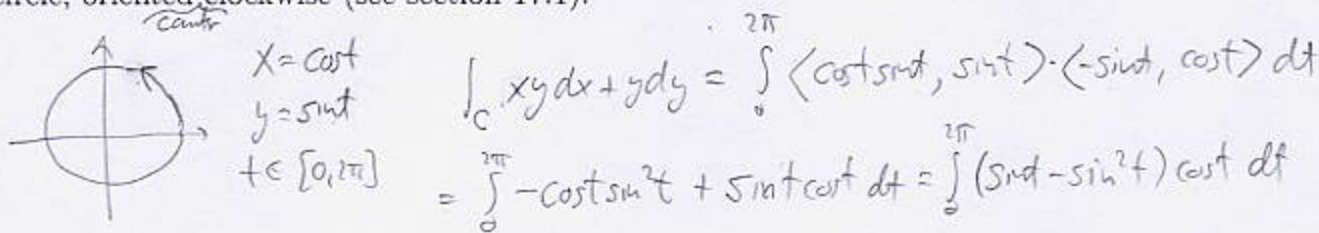 circle, oriented clockwise (see section 17.1).
counter
x = cost
y = sint
t ∈ [0, 2π]
∫_C xydx + ydy = ∫_0^{2π} ⟨costsint, sint⟩·⟨-sint, cost⟩ dt
= ∫_0^{2π} -costsin²t + sintcost dt = ∫_0^{2π} (sint - sin²t) cost dt